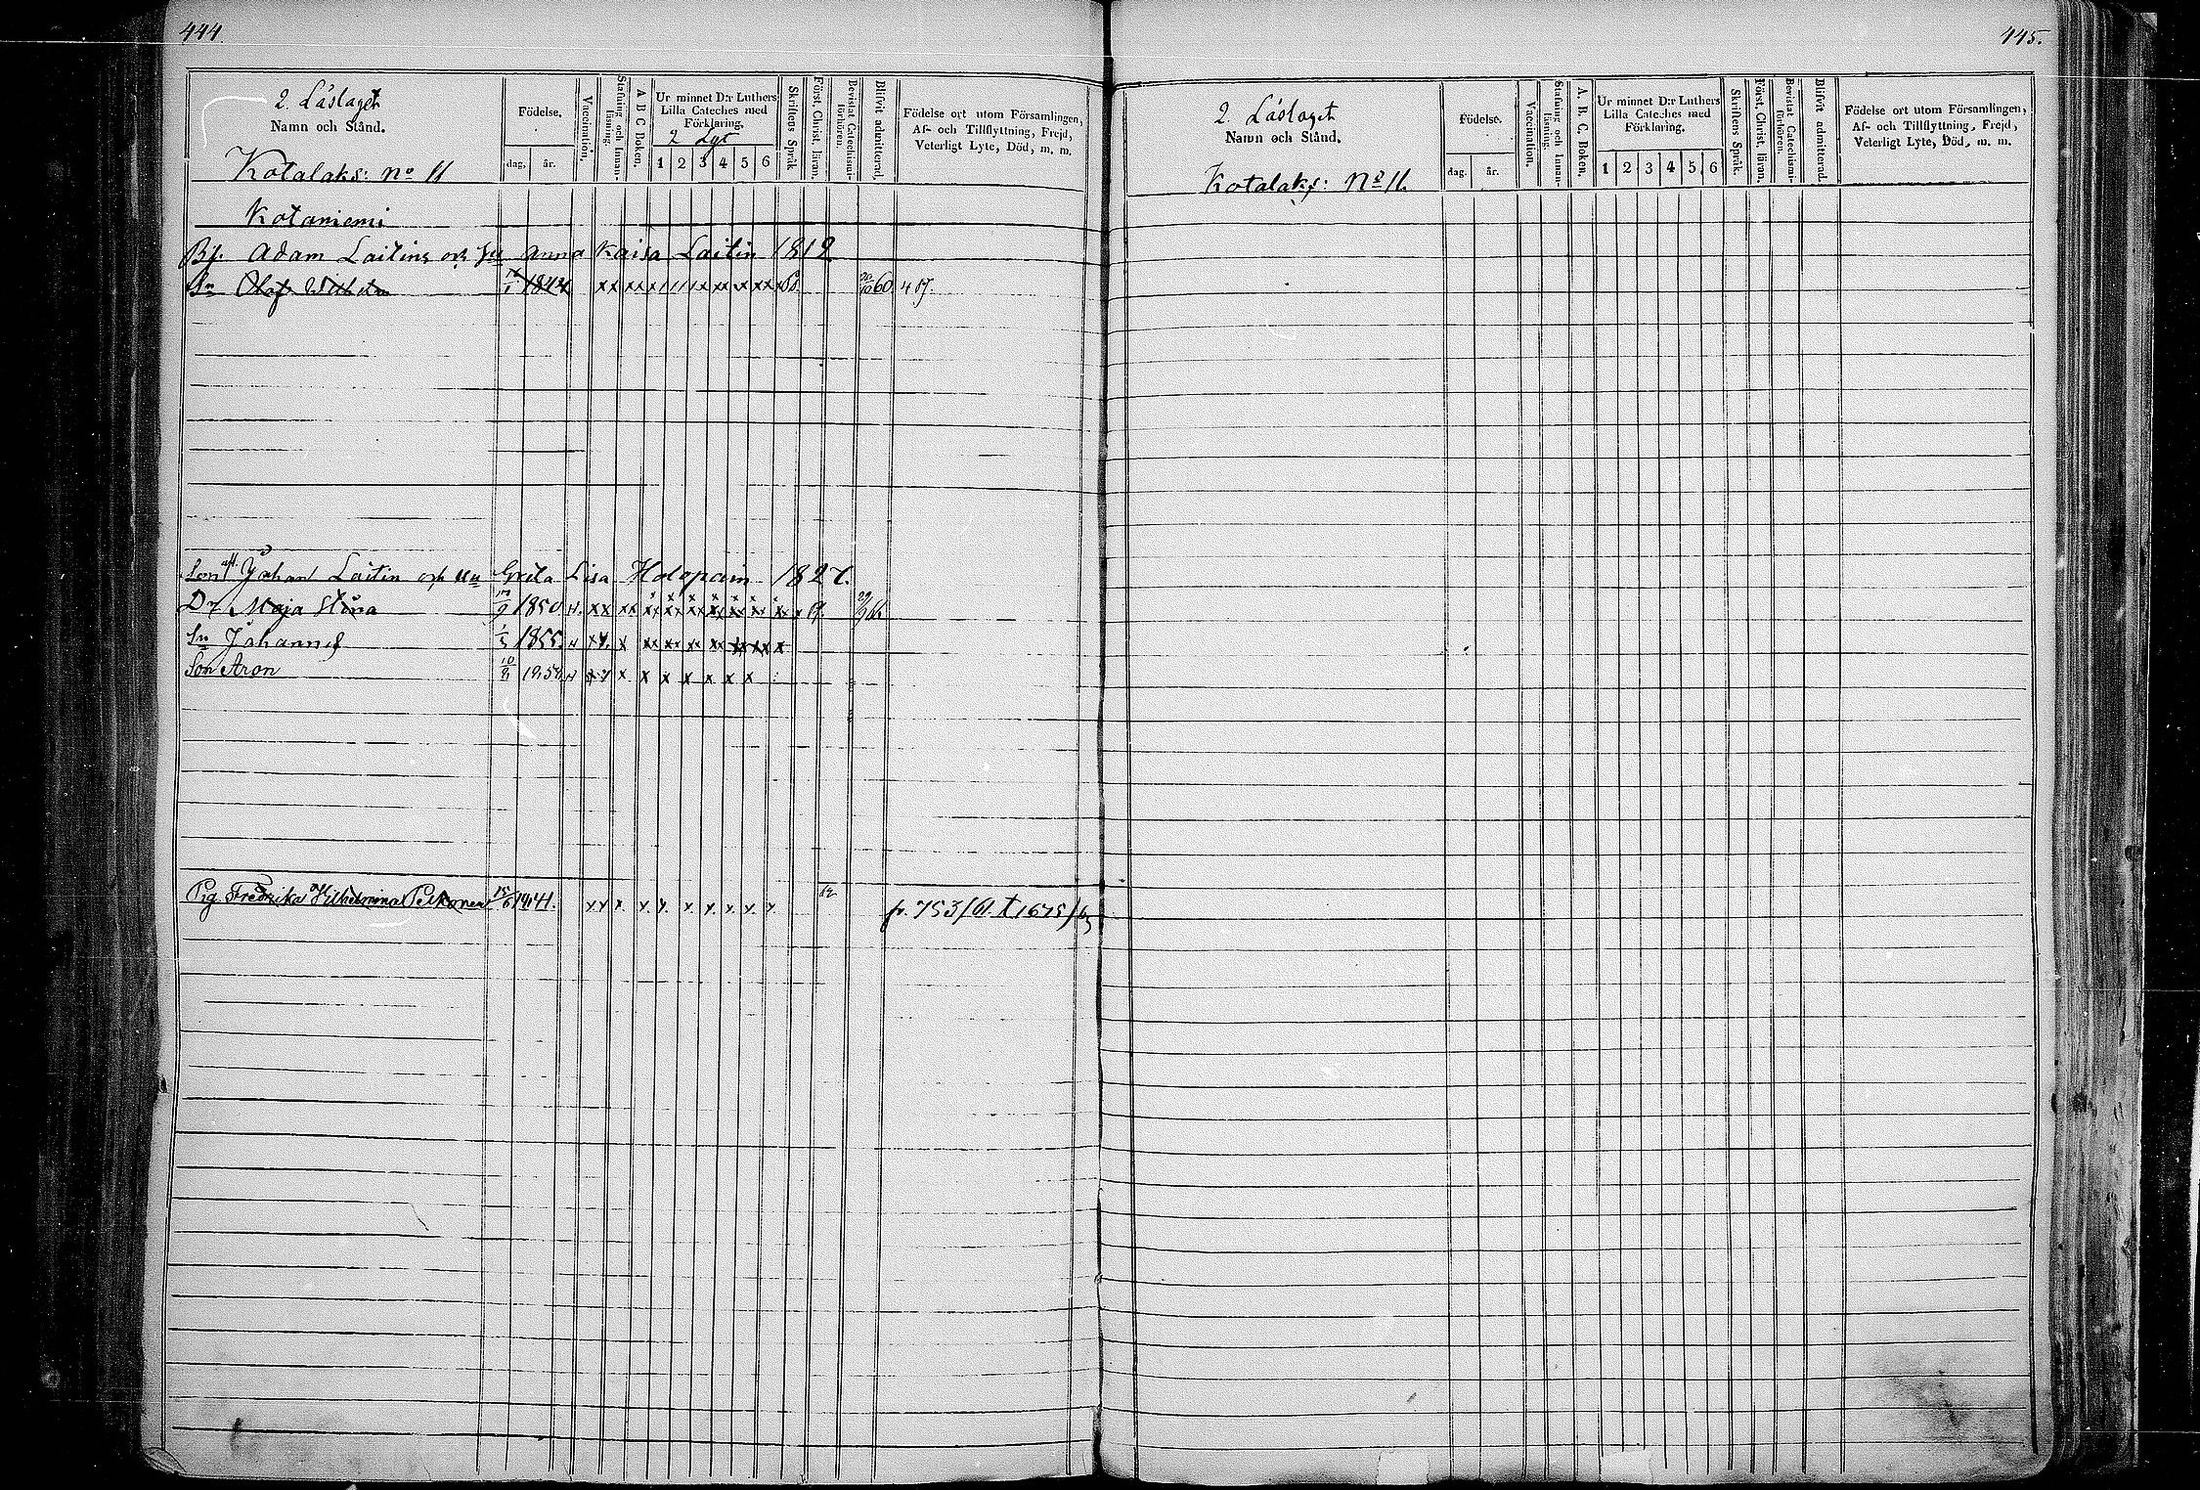 444.
2. Läslaget
Namn och Stånd.
Kotalaks: No 11
Födelse.
dag. år.
Vaccination.
Stafning och Innanläsning.
A B C Boken.
Ur minnet D:r Luthers
Lilla Cateches med
Förklaring.
2 Lgt
1 2 3 4 5 6
Skriftens Språk
Först. Christ. läran.
Bevistat Catechismiförhören.
Blifvit admitterad.
Födelse ort utom Församlingen,
Af- och Tillflyttning, Frejd,
Veterligt Lyte, Död, m. m.
Kotaniemi
Adam Laitin och hu Anna Kaisa Laitin 1812
Sn Olof Wilhelm 1844 xx xx x x x x 60
Son Johan Laitin och hu Greta Lisa Holopain 1827.
Dr Maja Stina 9 1850 xx xx xx xx xx xx xx xx
Sn Johannes 1855 x xx xx xx xx xx xx x
Son Aron 10 x x x x x x x
Pig. Fredrika Wilhelmina Pelkonen xx x x x x x x x x fr. 753/61. t 1675/65
445.
2. Läslaget
Namn och Stånd.
Kotalaks: No 11.
Födelse.
dag. år.
Vaccination.
Stafning och Innanläsning.
A. B. C. Boken.
Ur minnet D:r Luthers
Lilla Cateches med
Förklaring.
1 2 3 4 5 6
Skriftens Språk.
Först. Christ. läran.
Bevistat Catechismiförhören.
Blifvit admitterad
Födelse ort utom Församlingen,
Af- och Tillflyttning, Frejd,
Veterligt Lyte, Död, m. m.